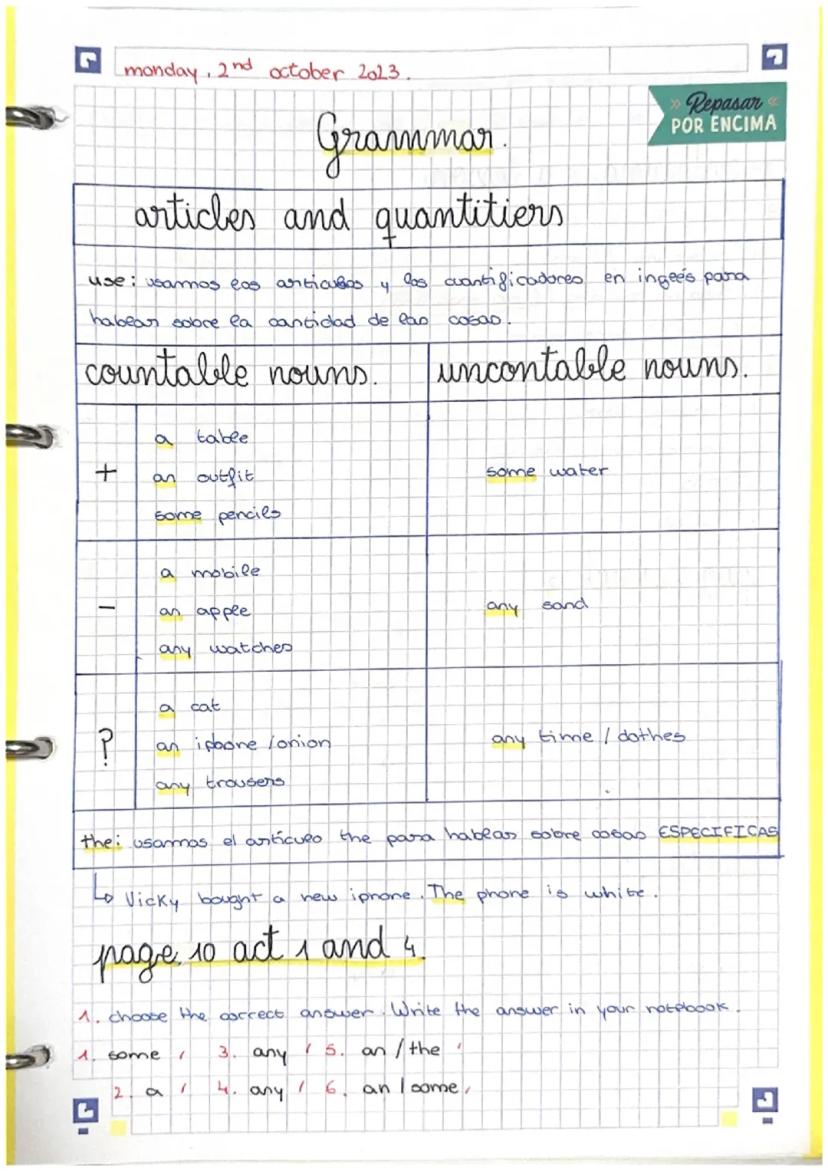 monday, 2nd october 2023.
Repasar
POR ENCIMA
Grammar.
articles and quantitiers
use: usamos los articulos y los cuantificadores en inglés para
hablar sobre la cantidad de las cosas.
countable nouns.
uncontable nouns.
+
a table
an outfit
some pencils
some water
-
a mobile
an apple
any watches
any sand
?
a cat
an iphone / onion
any trousers
any time / clothes
the: usamos el artículo the para hablar sobre cosas ESPECIFICAS
↳ Vicky bought a new iphone. The phone is white.
page 10 act 1 and 4.
1. choose the correct answer. Write the answer in your notebook.
1. some / 3. any / 5. an / the /
2. a / 4. any / 6. an / some /